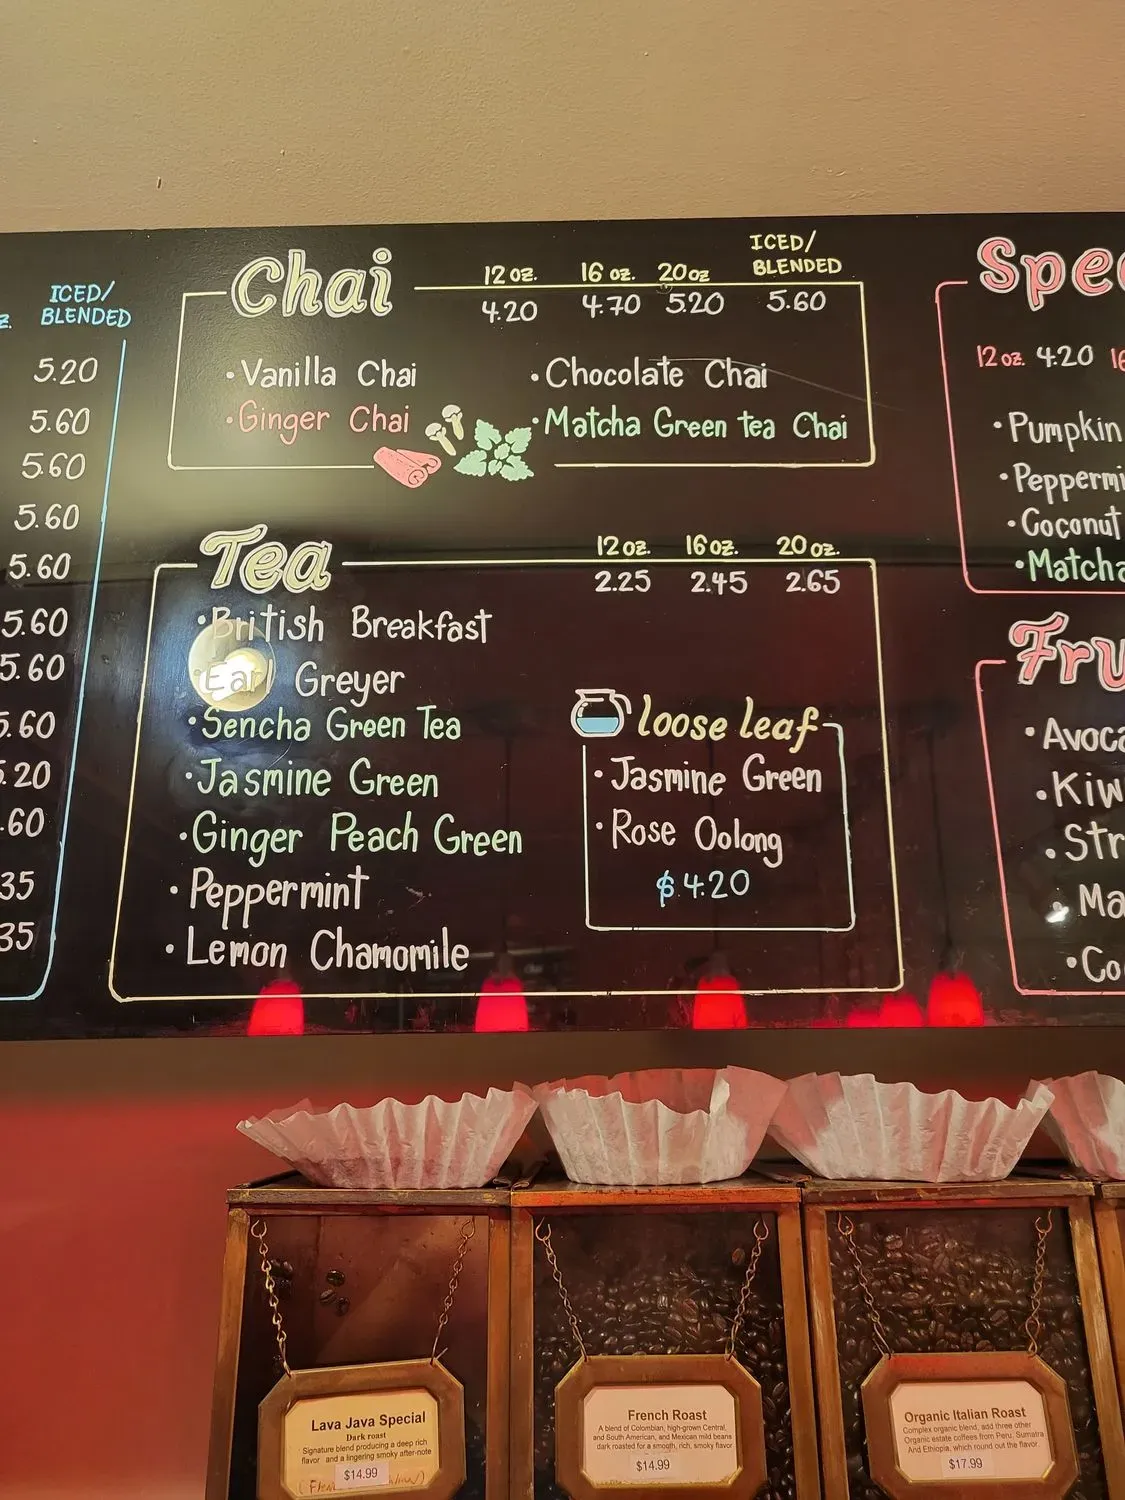 ICED/
BLENDED
5.20
5.60
5.60
5.60
5.60
5.60
5.60
5.60
5.20
.60
35
35
Chai
12 oz. 16 oz. 20 oz ICED/
BLENDED
4.20 4.70 5.20 5.60
• Vanilla Chai
• Ginger Chai
• Chocolate Chai
• Matcha Green Tea Chai
Tea
12 oz. 16 oz. 20 oz.
2.25 2.45 2.65
• British Breakfast
• Earl Greyer
• Sencha Green Tea
• Jasmine Green
• Ginger Peach Green
• Peppermint
• Lemon Chamomile
loose leaf
• Jasmine Green
• Rose Oolong
$4.20
Spec
12 oz. 4.20 16
• Pumpkin
• Peppermi
• Coconut
• Matcha
Fru
• Avoca
• Kiw
• Str
• Ma
• Co
Lava Java Special
Dark roast
Signature blend producing a deep rich
flavor and a lingering smoky after-note
$14.99
French Roast
A blend of Colombian, high-grown Central,
and South American, and Mexican mild beans
dark roasted for a smooth, rich, smoky flavor
$14.99
Organic Italian Roast
Complex organic blend, add three other
Organic estate coffees from Peru, Sumatra
And Ethiopia, which round out the flavor.
$17.99